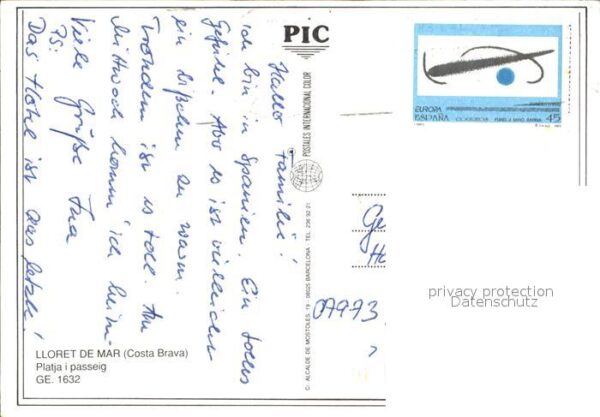 Hallo Familie!
ich bin in Spanien. Ein tolles
Gefühl. Aber es ist vielleicht
ein bißchen zu warm.
Trotzdem ist es toll. Am
Mittwoch komm ich heim.
Viele Grüße
PS:
Das Hotel ist das letzte!
PIC
POSTALES INTERNACIONAL COLOR
C/. ALCALDE DE MOSTOLES, 19 - 08025 BARCELONA - TEL. 236 92 21
EUROPA
ESPAÑA
45
Ge
07973
privacy protection
Datenschutz
LLORET DE MAR (Costa Brava)
Platja i passeig
GE. 1632